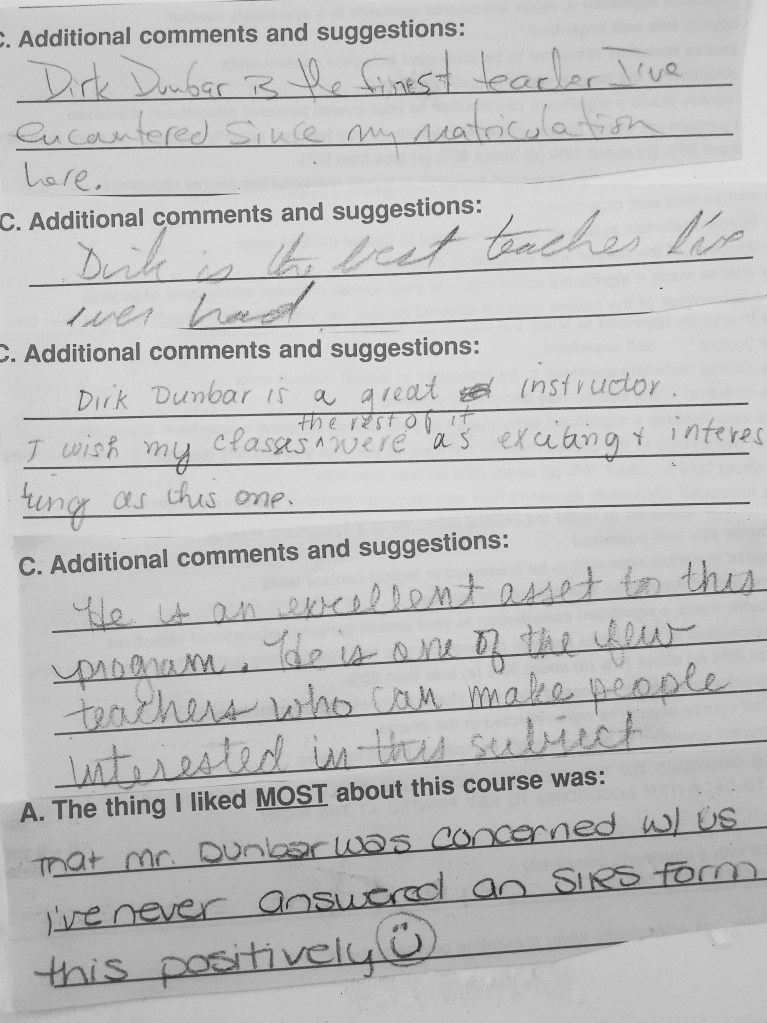 C. Additional comments and suggestions:
Dirk Dunbar is the finest teacher I've
encountered since my matriculation
here.
C. Additional comments and suggestions:
Dirk is the best teacher I've
ever had
C. Additional comments and suggestions:
Dirk Dunbar is a great instructor.
the rest of it
I wish my classes ^ were as exciting & interes
ting as this one.
C. Additional comments and suggestions:
He is an excellent asset to this
program. He is one of the few
teachers who can make people
interested in this subject
A. The thing I liked MOST about this course was:
That mr. Dunbar was concerned w/ us
I've never answered an SIRS form
this positively